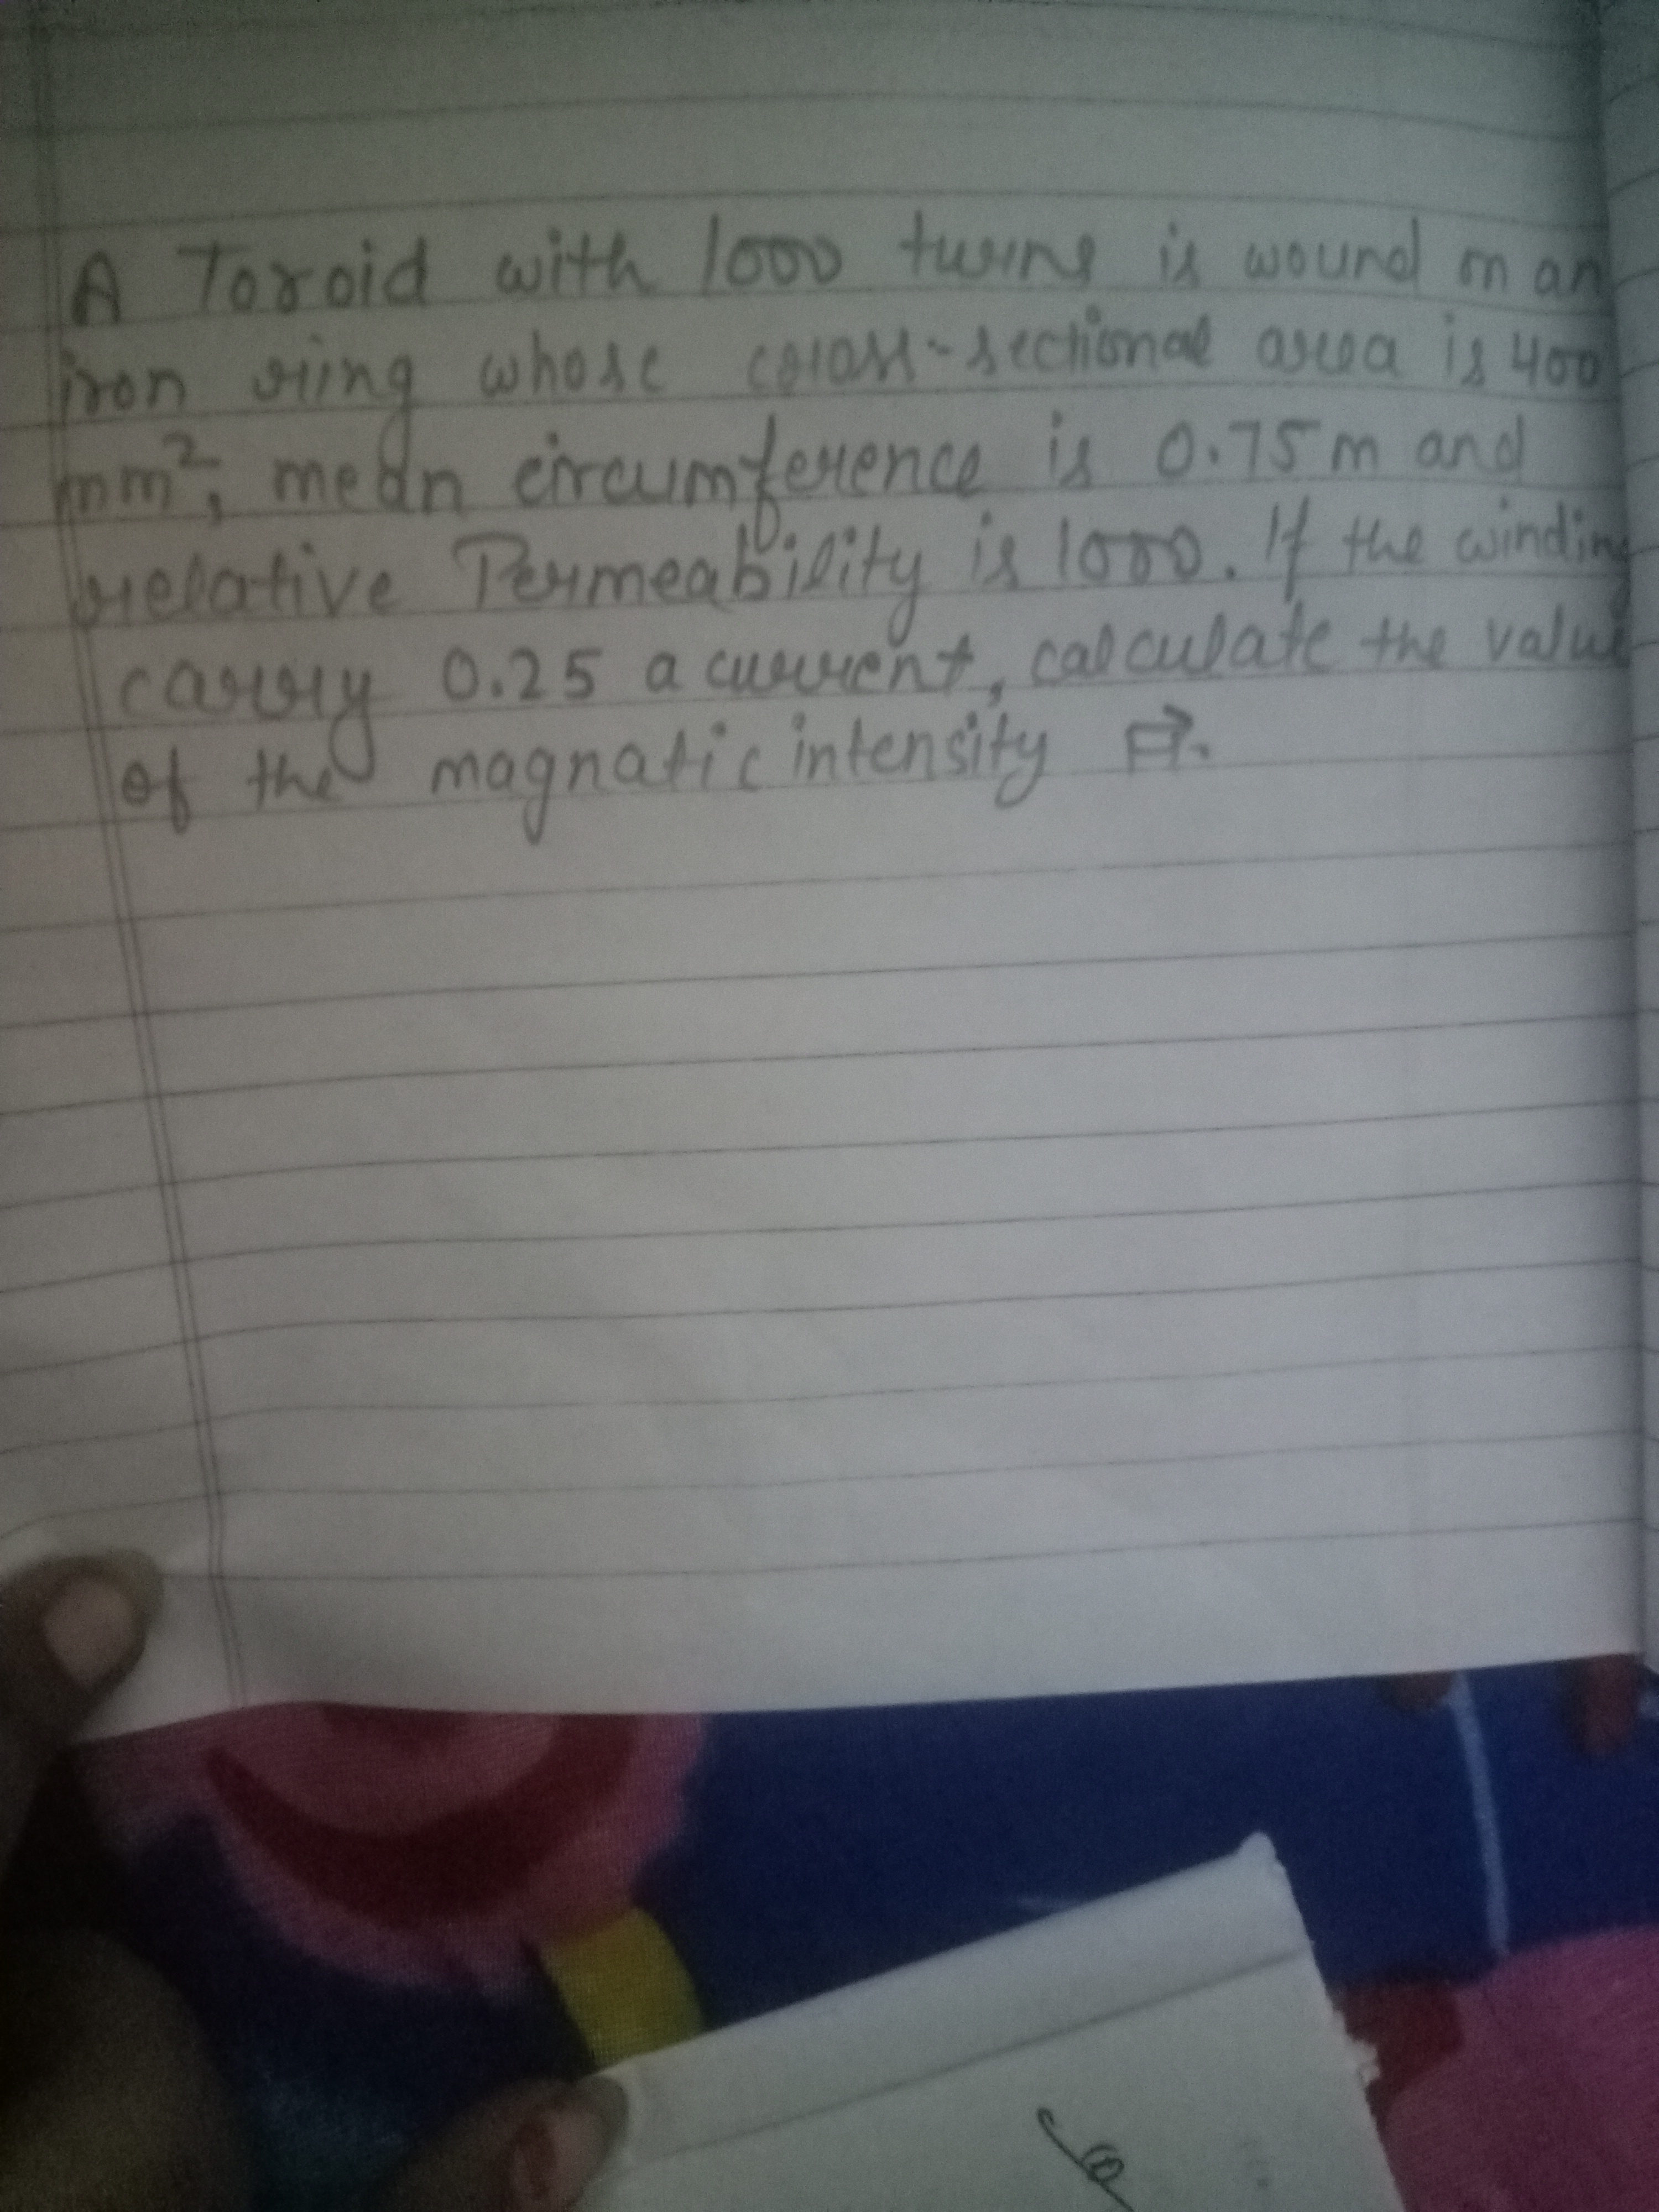 A Toroid with 1000 turns is wound on an
iron ring whose cross-sectional area is 400
mm², mean circumference is 0.75m and
relative Permeability is 1000. If the winding
carry 0.25 a current, calculate the value
of the magnatic intensity H⃗.